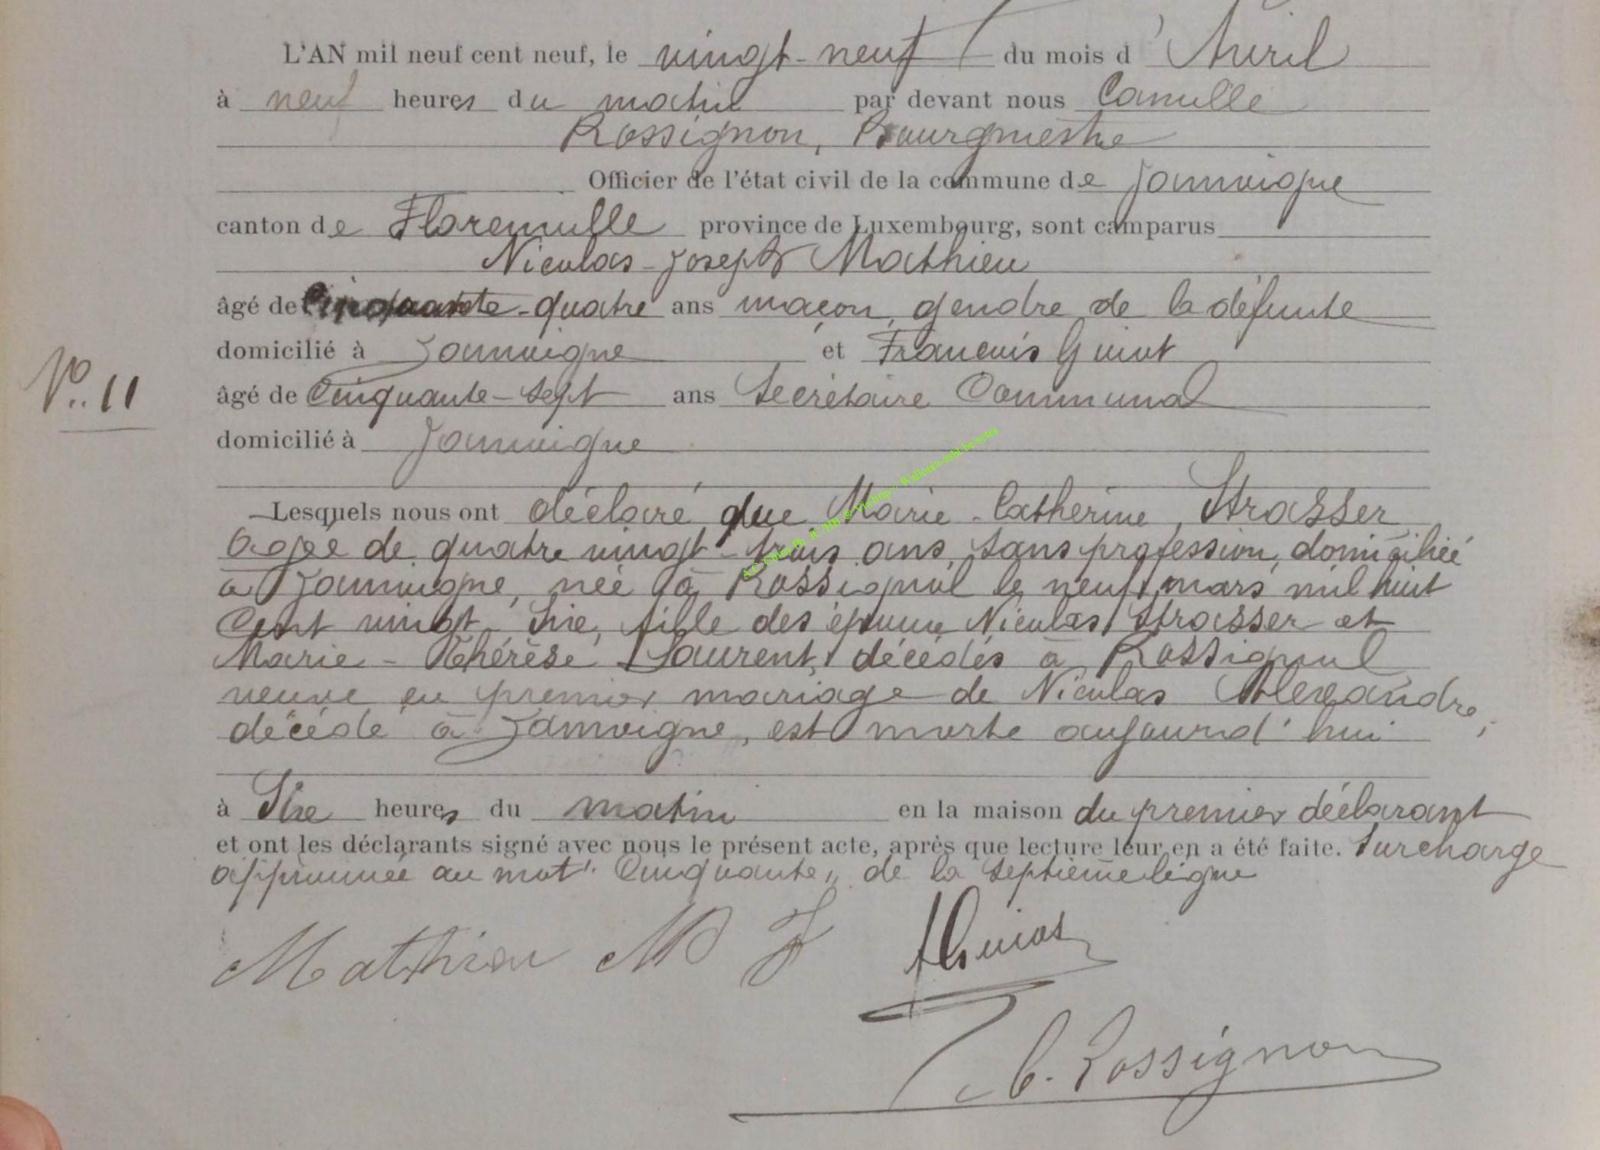 L'AN mil neuf cent neuf, le vingt-neuf du mois d'Avril
à neuf heures du matin par devant nous Camille
Rossignon, Bourgmestre
Officier de l'état civil de la commune de Jamoigne
canton de Florenville province de Luxembourg, sont comparus
Nicolas-Joseph Mathieu
âgé de Cinquante-quatre ans maçon, gendre de la défunte
domicilié à Jamoigne et François Guiot
N° 11
âgé de Cinquante-sept ans Secrétaire Communal
domicilié à Jamoigne
Lesquels nous ont déclaré que Marie-Catherine Strasser
agée de quatre vingt-trois ans, sans profession, domiciliée
à Jamoigne, née à Rossignol le neuf mars mil huit
Cent vingt-Six, fille des époux Nicolas Strasser et
Marie-Thérèse Laurent, décédés à Rossignol
veuve en premier mariage de Nicolas Alexandre,
décédé à Jamoigne, est morte aujourd'hui
à Six heures du matin en la maison du premier déclarant
et ont les déclarants signé avec nous le présent acte, après que lecture leur en a été faite. Surcharge
approuvée au mot "Cinquante" de la septième ligne
Mathieu N J
Guiot
C. Rossignon